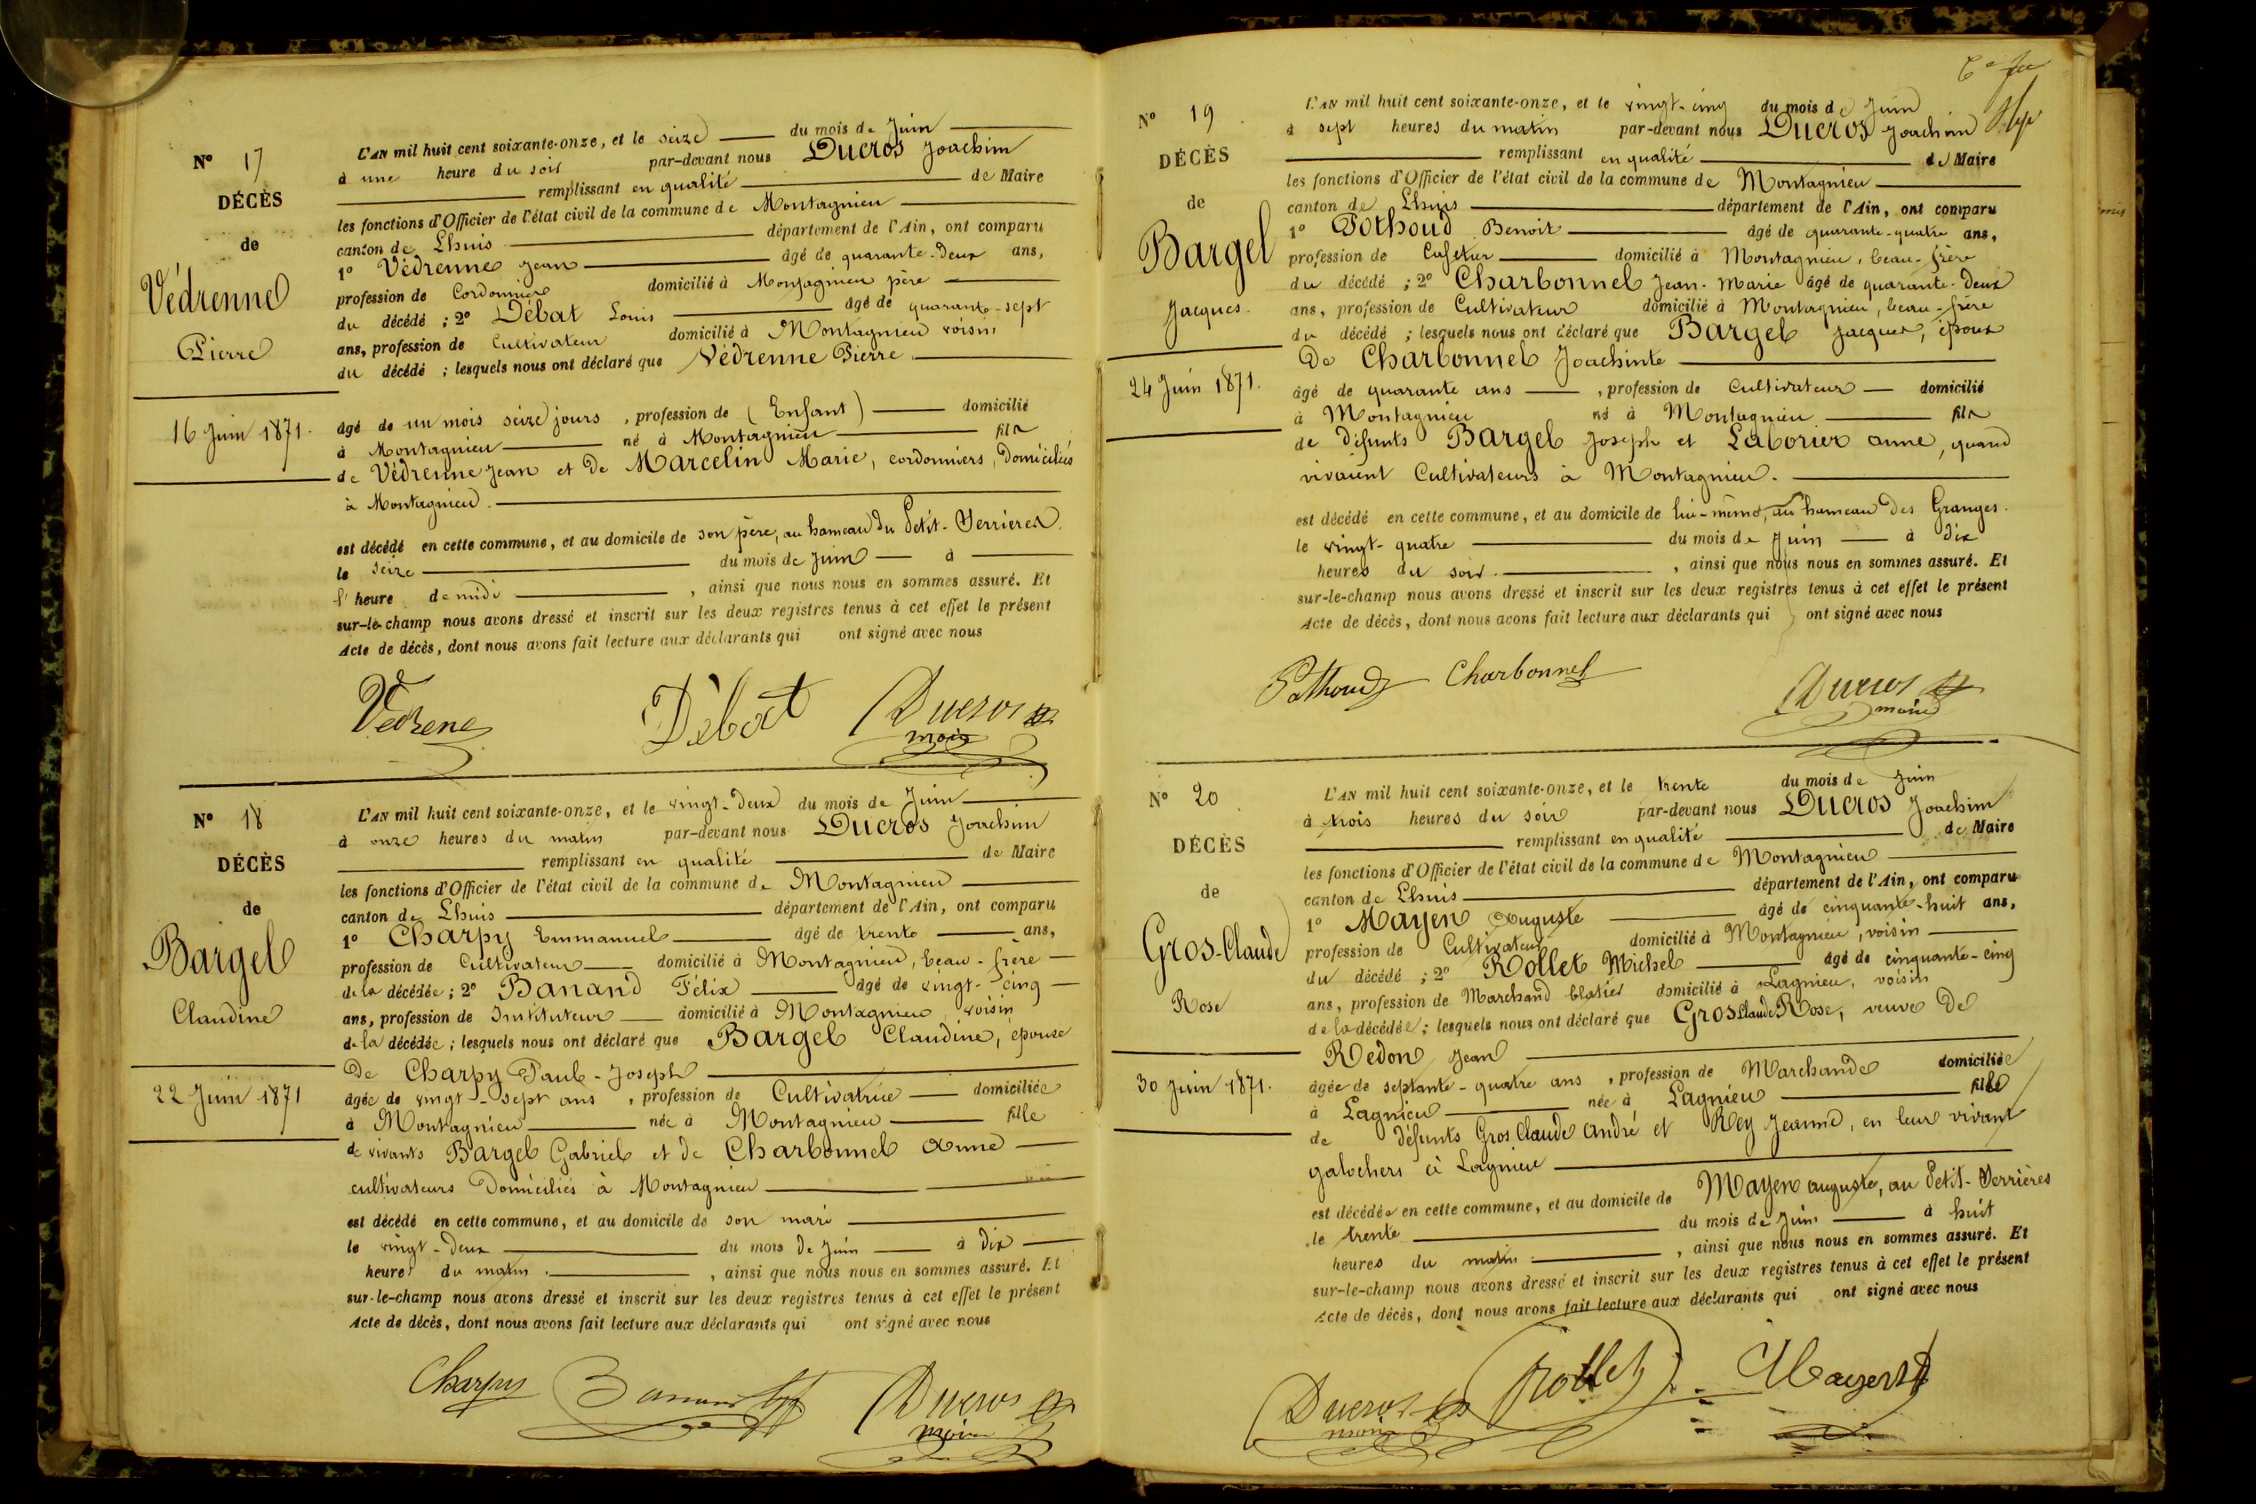 N° 17
DÉCÈS
de
Védrenne
Pierre
16 Juin 1871.
L'AN mil huit cent soixante-onze, et le seize du mois de Juin
à une heure du soir par-devant nous Ducros Joachim
remplissant en qualité de Maire
les fonctions d'Officier de l'état civil de la commune de Montagnieu
canton de Lhuis département de l'Ain, ont comparu
1° Védrenne Jean âgé de quarante-deux ans,
profession de Cordonnier domicilié à Montagnieu père
du décédé ; 2° Débat Louis âgé de quarante-sept
ans, profession de Cultivateur domicilié à Montagnieu voisin
du décédé ; lesquels nous ont déclaré que Védrenne Pierre
âgé de un mois seize jours, profession de (Enfant) domicilié
à Montagnieu né à Montagnieu fils
de Védrenne Jean et de Marcelin Marie, cordonniers, domiciliés
à Montagnieu.
est décédé en cette commune, et au domicile de son père, au hameau du Petit-Serrières.
le seize du mois de Juin à
l'heure de midi, ainsi que nous nous en sommes assuré. Et
sur-le-champ nous avons dressé et inscrit sur les deux registres tenus à cet effet le présent
Acte de décès, dont nous avons fait lecture aux déclarants qui ont signé avec nous
Vedrene Débat Ducros
maire
N° 18
DÉCÈS
de
Bargel
Claudine
22 Juin 1871
L'AN mil huit cent soixante-onze, et le vingt-deux du mois de Juin
à onze heures du matin par-devant nous Ducros Joachim
remplissant en qualité de Maire
les fonctions d'Officier de l'état civil de la commune de Montagnieu
canton de Lhuis département de l'Ain, ont comparu
1° Charpy Emmanuel âgé de trente ans,
profession de Cultivateur domicilié à Montagnieu, beau-frère
de la décédée ; 2° Banand Félix âgé de vingt-cinq
ans, profession de Instituteur domicilié à Montagnieu voisin
de la décédée ; lesquels nous ont déclaré que Bargel Claudine, épouse
de Charpy Paul-Joseph
âgée de vingt-sept ans, profession de Cultivatrice domiciliée
à Montagnieu née à Montagnieu fille
de vivants Bargel Gabriel et de Charbonnel Anne
cultivateurs domiciliés à Montagnieu
est décédé en cette commune, et au domicile de son mari
le vingt-deux du mois de Juin à dix
heures du matin., ainsi que nous nous en sommes assuré. Et
sur-le-champ nous avons dressé et inscrit sur les deux registres tenus à cet effet le présent
Acte de décès, dont nous avons fait lecture aux déclarants qui ont signé avec nous
Charpy Banand Ducros
maire
N° 19
DÉCÈS
de
Bargel
Jacques.
24 Juin 1871.
L'AN mil huit cent soixante-onze, et le vingt-cinq du mois de Juin
à sept heures du matin par-devant nous Ducros Joachim
remplissant en qualité de Maire
les fonctions d'Officier de l'état civil de la commune de Montagnieu
canton de Lhuis département de l'Ain, ont comparu
1° Pothoud Benoit âgé de quarante-quatre ans,
profession de Cafetier domicilié à Montagnieu, beau-frère
du décédé ; 2° Charbonnel Jean-Marie âgé de quarante-deux
ans, profession de Cultivateur domicilié à Montagnieu, beau-frère
du décédé ; lesquels nous ont déclaré que Bargel Jacques, époux
de Charbonnel Joachinte
âgé de quarante ans, profession de Cultivateur domicilié
à Montagnieu né à Montagnieu fils
de défunts Bargel Joseph et Laborier Anne, quand
vivaient Cultivateurs à Montagnieu.
est décédé en cette commune, et au domicile de lui-même, au hameau des Granges.
le vingt-quatre du mois de Juin à dix
heures du soir., ainsi que nous nous en sommes assuré. Et
sur-le-champ nous avons dressé et inscrit sur les deux registres tenus à cet effet le présent
Acte de décès, dont nous avons fait lecture aux déclarants qui ont signé avec nous
Pothoud Charbonnel Ducros
maire
N° 20
DÉCÈS
de
Gros-Claude
Rose
30 Juin 1871.
L'AN mil huit cent soixante-onze, et le trente du mois de Juin
à trois heures du soir par-devant nous Ducros Joachim
remplissant en qualité de Maire
les fonctions d'Officier de l'état civil de la commune de Montagnieu
canton de Lhuis département de l'Ain, ont comparu
1° Mayen Auguste âgé de cinquante-huit ans,
profession de Cultivateur domicilié à Montagnieu, voisin
du décédé ; 2° Rollet Michel âgé de cinquante-cinq
ans, profession de Marchand blatier domicilié à Lagnieu, voisin
de la décédée ; lesquels nous ont déclaré que Gros Claude Rose, veuve de
Redon Jean
âgée de septante-quatre ans, profession de Marchande domiciliée
à Lagnieu née à Lagnieu fille
de défunts Gros Claude André et Rey Jeanne, en leur vivant
galochers à Lagnieu
est décédée en cette commune, et au domicile de Mayen auguste, au Petit-Serrières
le trente du mois de Juin à huit
heures du matin., ainsi que nous nous en sommes assuré. Et
sur-le-champ nous avons dressé et inscrit sur les deux registres tenus à cet effet le présent
Acte de décès, dont nous avons fait lecture aux déclarants qui ont signé avec nous
Ducros Rollet Mayen
maire